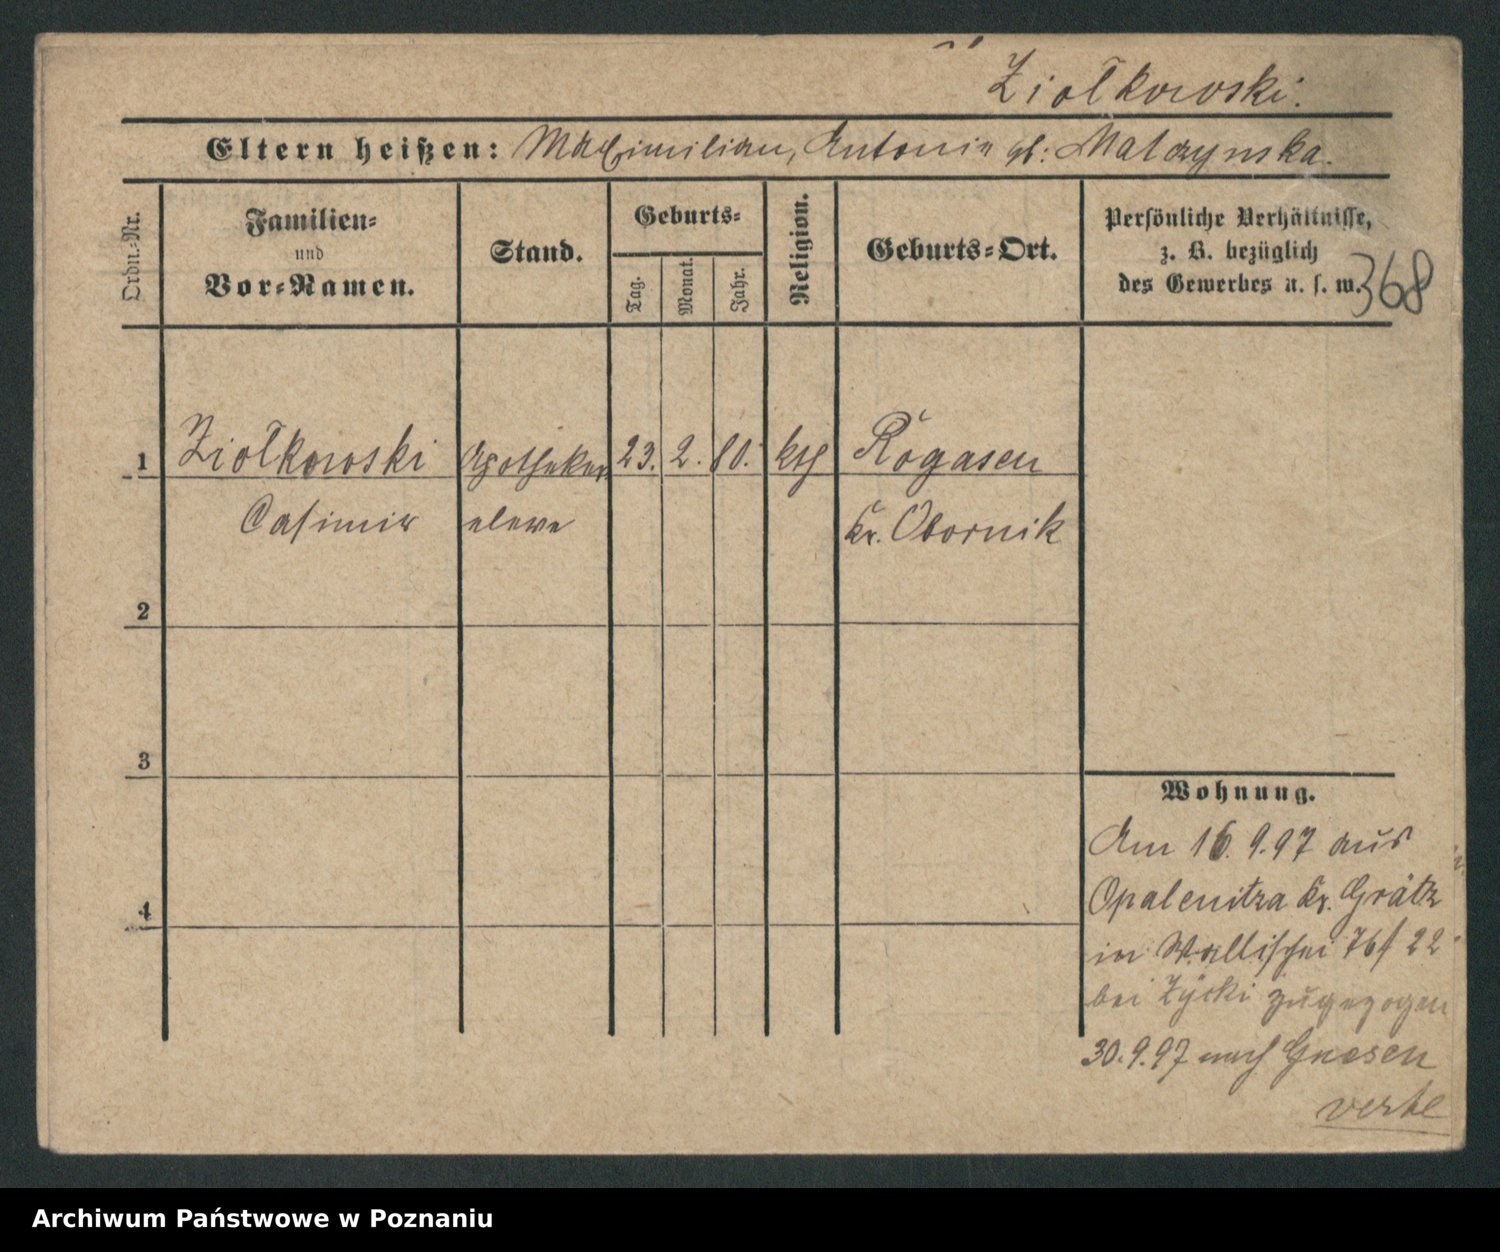 Ziołkowski.
Eltern heißen: Maximilian, Antonie gb: Malczynska.
Ordn.-Nr.
Familien-
und
Vor-Namen.
Stand.
Geburts-
Tag.
Monat.
Jahr.
Religion.
Geburts-Ort.
Persönliche Verhältnisse,
z. B. bezüglich
des Gewerbes u. s. w.
368
1 Ziołkowski Apotheker 23. 2. 80. kth Rogasen
Casimir eleve Kr. Obornik
2
3
4
Wohnung.
Am 16. 9. 97 aus
Opalenitza Kr. Grätz
in Wallischei 22
bei Życki zugezogen
30. 9. 97 nach Gnesen
verte
Archiwum Państwowe w Poznaniu